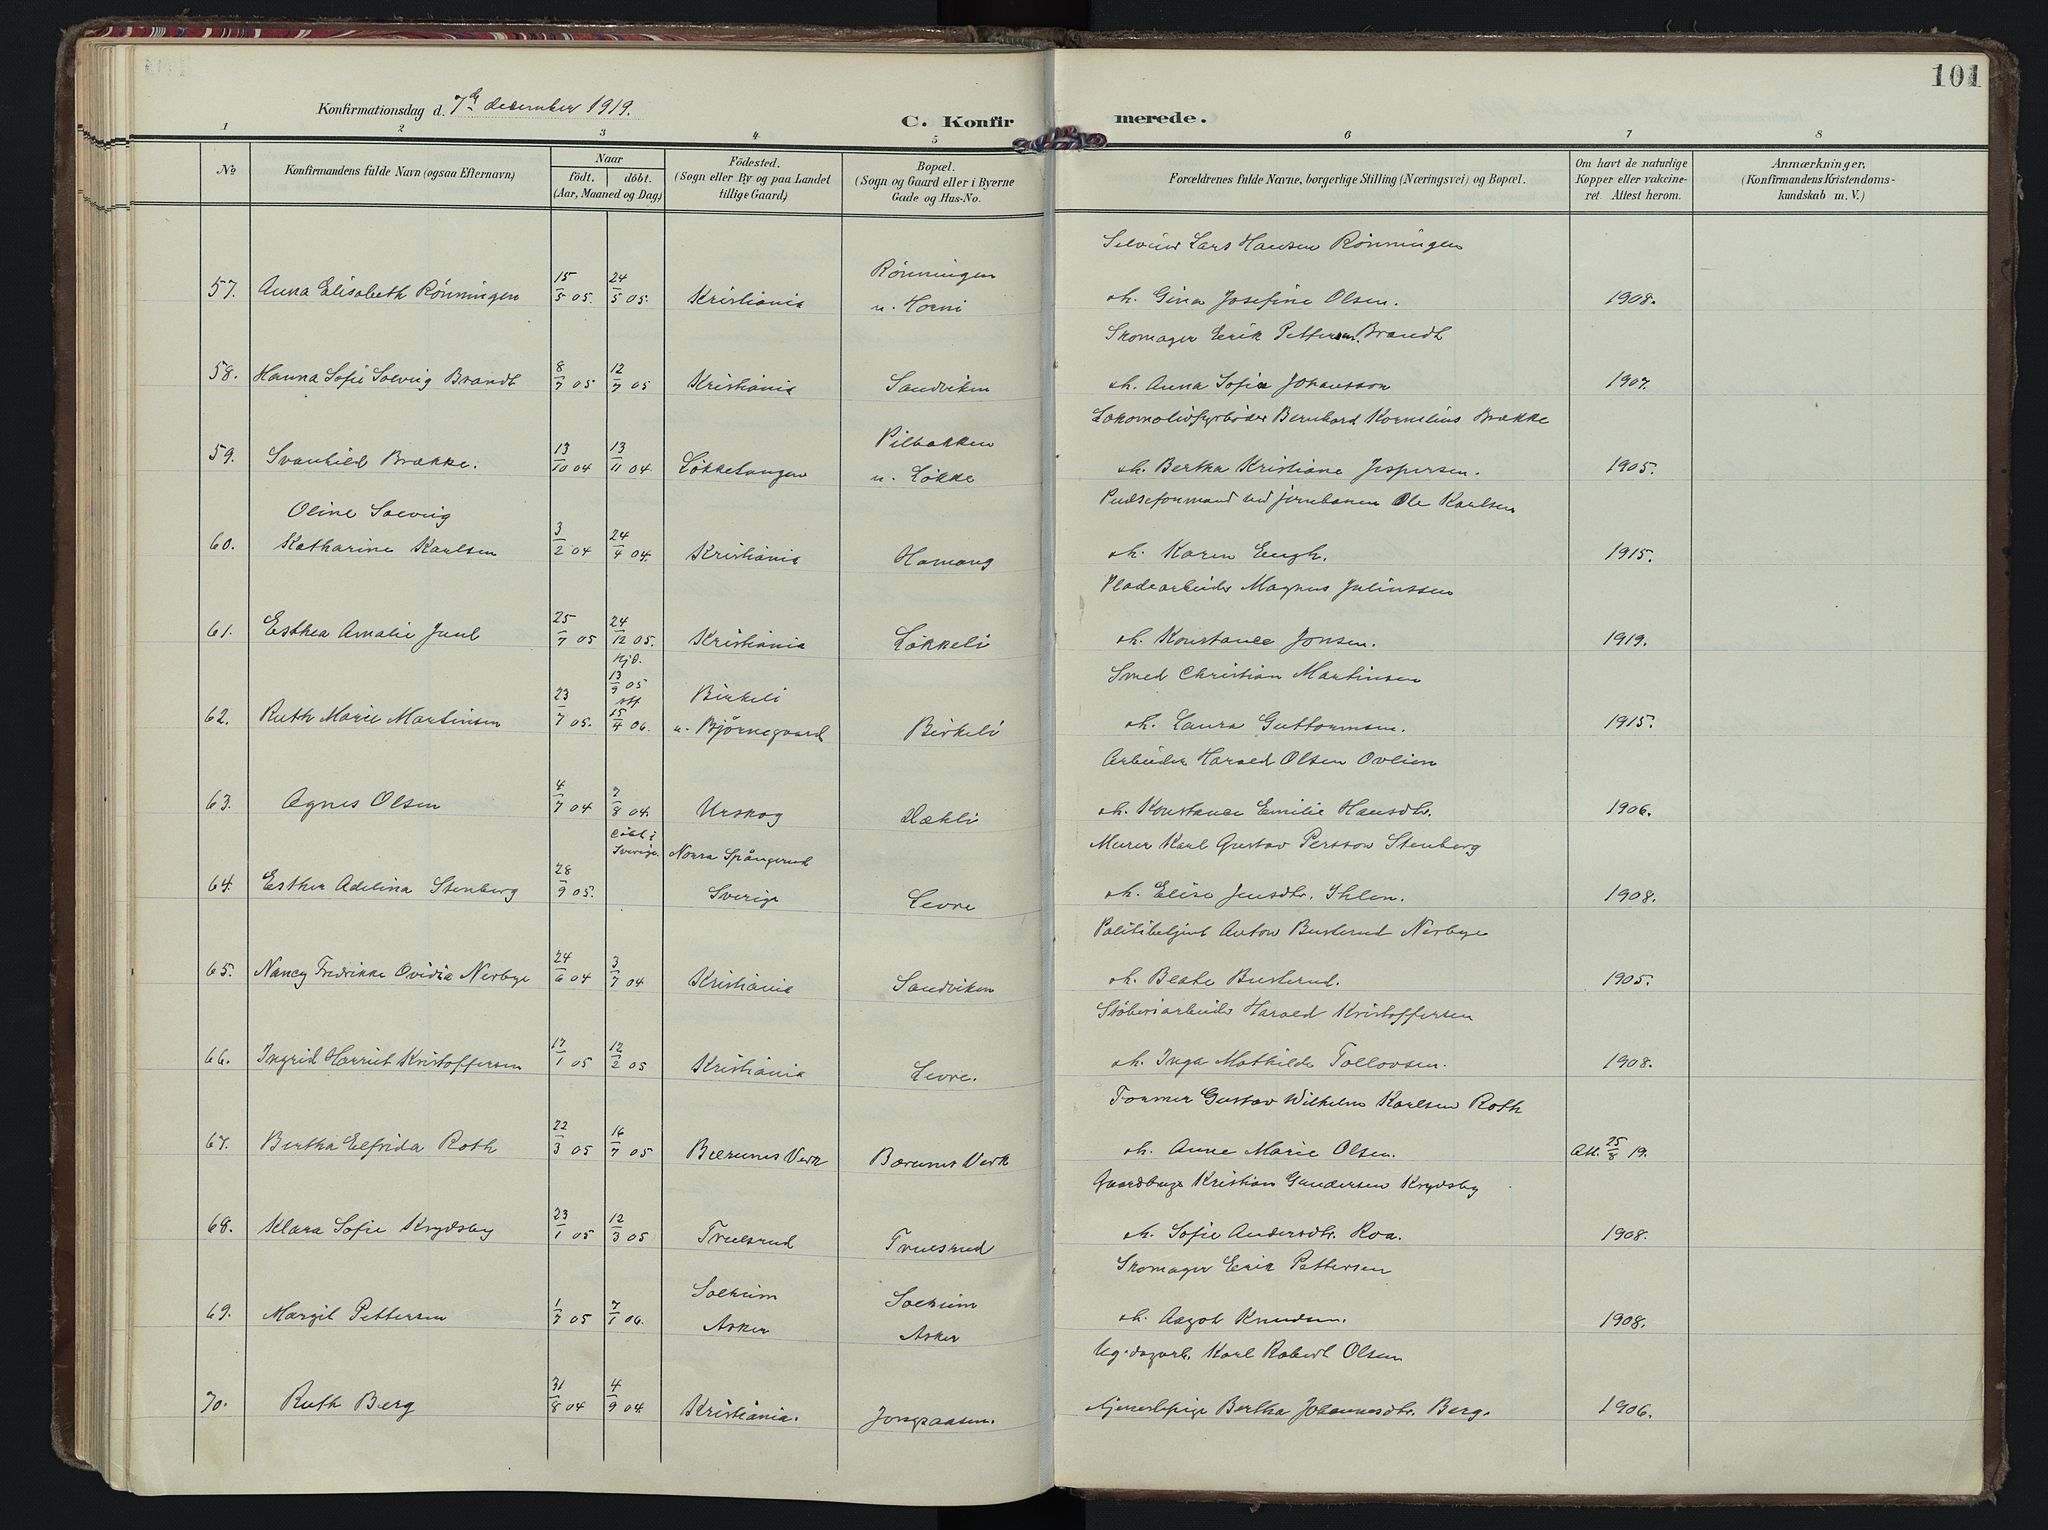 101
Konfirmationsdag d. 7de december 1919.
C. Konfirmerede.
1 2 3 4 5 6 7 8
No
Konfirmandens fulde Navn (ogsaa Efternavn)
Naar
födt. döbt.
(Aar, Maaned og Dag)
Födested.
(Sogn eller By og paa Landet
tillige Gaard)
Bopæl.
(Sogn og Gaard eller i Byerne
Gade og Hus-No.
Forældrenes fulde Navne, borgerlige Stilling (Næringsvei) og Bopæl.
Om havt de naturlige
Kopper eller vakcine-
ret. Attest herom.
Anmærkninger.
(Konfirmandens Kristendoms-
kundskab m. V.)
Selveier Lars Hansen Rønningen
57. Anna Elisabeth Rønningen 15/5 05. 24/5 05. Kristiania Rønningen u. Horni oh. Gina Josefine Olsen. 1908.
Skomager Erik Pettersen Brandt
58. Hanna Sofie Solveig Brandt 8/7 05 12/7 05 Kristiania Sandviken oh. Anna Sofie Johansson 1907.
Lokomotivfyrbøder Bernhard Kornelius Brække
59. Svanhild Brække. 13/10 04 13/11 04. Løkketangen Pilbakken u. Løkke oh. Bertha Kristiane Jespersen. 1905.
Pudseformand ved jernbanen Ole Karlsen
60. Oline Solveig Katharine Karlsen 3/2 04 24/4 04. Kristiania Hamang oh. Karen Engh. 1915.
Pladearbeider Magnus Juliussen
61. Esther Amalie Juul 25/7 05 24/12 05. Kristiania Løkkeli oh. Konstance Jonsen. 1919.
Smed Christian Martinsen
62. Ruth Marie Martinsen 23/7 05. Hjd. 13/9 05 stf 15/4 06. Birkeli u. Bjørnegaard Birkeli oh. Laura Guttormsen. 1915.
Arbeider Harald Olsen Ovlien
63. Agnes Olsen 4/7 04 7/8 04. Urskog Dæhli oh. Konstance Emilie Hansdtr. 1906.
Murer Karl Gustav Persson Stenberg
64. Esther Adelina Stenberg 28/9 05. døbt i Sverige. Norra Spångerud Sverige Levre oh. Elise Jensdtr. Ihlen. 1908.
Politibetjent Anton Busterud Nerbye
65. Nancy Fredrikke Ovidia Nerbye 24/6 04 3/7 04 Kristiania Sandviken oh. Beate Busterud. 1905.
Støberiarbeider Harald Kristoffersen
66. Ingrid Harriet Kristoffersen 17/1 05 12/2 05 Kristiania Levre. oh. Inga Mathilde Tollovsen. 1908.
Former Gustav Wilhelm Karlsen Roth
67. Bertha Elfrida Roth 22/3 05 16/7 05 Bærums Verk Bærums Verk oh. Anne Marie Olsen. Att. 25/8 19.
Gaardbruger Kristian Gundersen Krydsby
68. Klara Sofie Krydsby 23/1 05 12/3 05 Truelsrud Truelsrud oh. Sofie Andersdtr. Roa. 1908.
Skomager Erik Pettersen
69. Margit Pettersen 1/7 05 7/1 06. Solheim Asker Solheim Asker oh. Aagot Knudsen. 1908.
Ug. dagarb. Karl Robert Olsen
70. Ruth Berg 31/8 04 4/9 04. Kristiania. Jongsaasen. tjenestepige Bertha Johannesdtr. Berg. 1906.